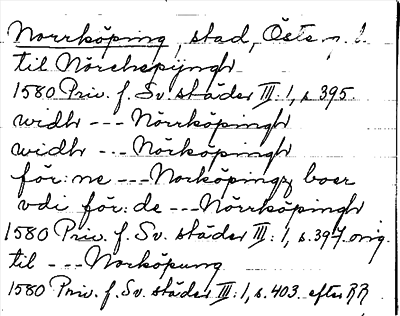 Norrköping, stad, Östg. l.
til Nörchepijngh
1580 Priv. f. Sv. städer III: 1, s. 395.
widh --- Nörrköpingh
widh --- Nörköpingh
för: ne --- Norköpingz boer
vdi för: de --- Nörrköpingh
1580 Priv. f. Sv. städer III: 1, s. 397. orig.
til --- Norköpung
1580 Priv. f. Sv. städer III: 1, s. 403. efter RR